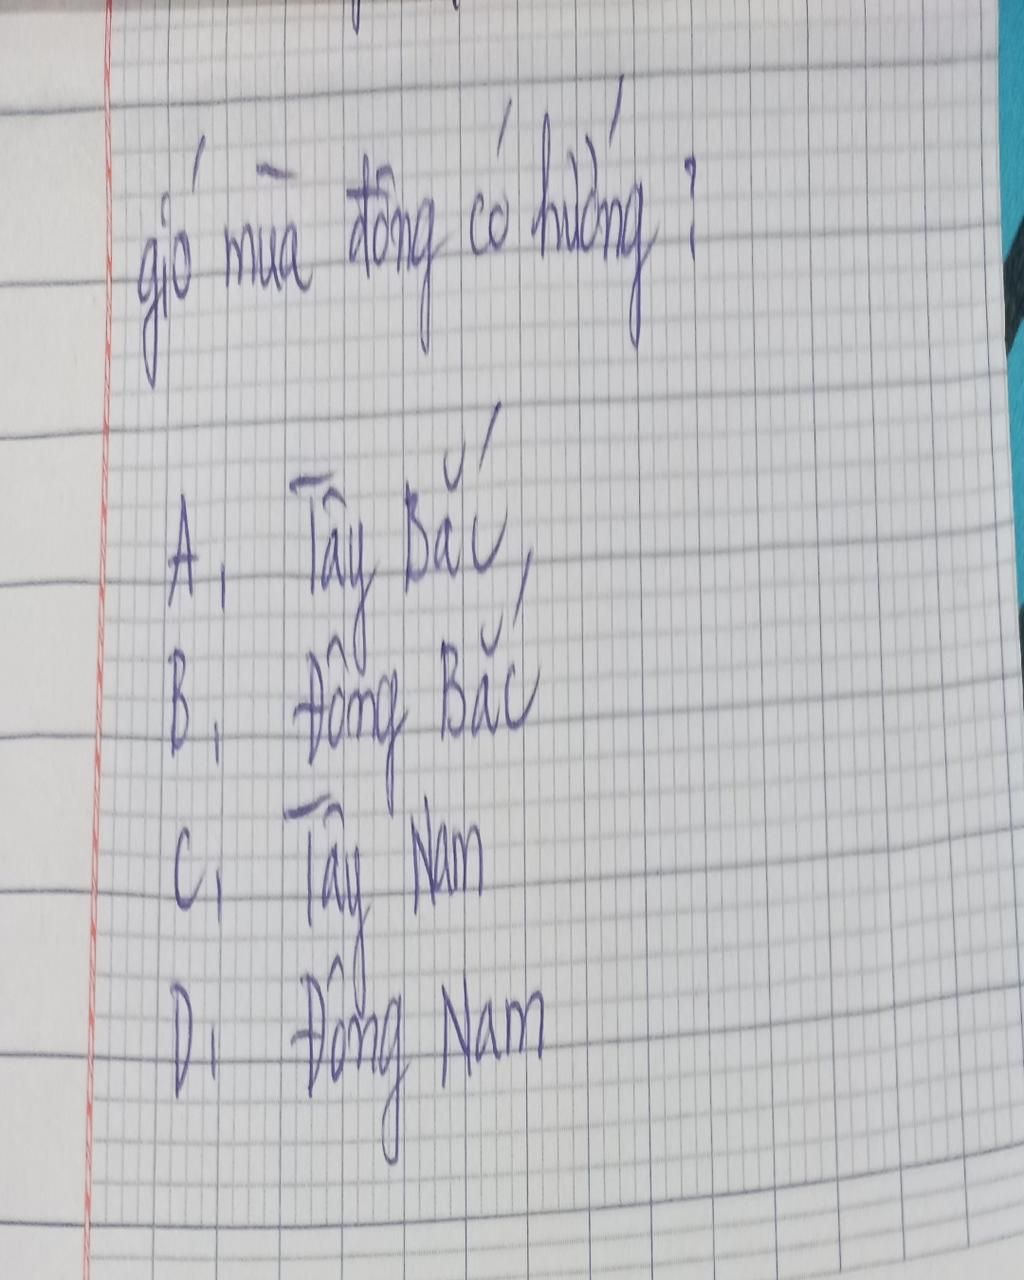 gió mùa đông có hướng ?
A, Tây Bắc,
B, Đông Bắc
C, Tây Nam
D, Đông Nam